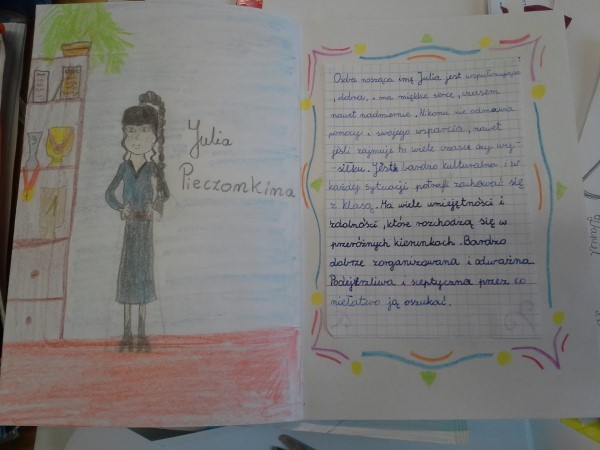 Julia
Pieczonkina
Osoba nosząca imę Julia jest współczująca
, dobra, i ma miękkie serce, czasem
nawet nadmiernie. Nikomu nie odmawia
pomocy i swojego wsparcia, nawet
jeśli zajmuje to wiele czasu czy wy-
siłku. Jest bardzo kulturalna i w
każdej sytuacji potrafi zachować się
z klasą. Ma wiele umiejętności i
zdolności, które rozchodzą się w
przeróżnych kierunkach. Bardzo
dobrze zorganizowana i odważna.
Podejrzliwa i sceptyczna przez co
niełatwo ją oszukać.